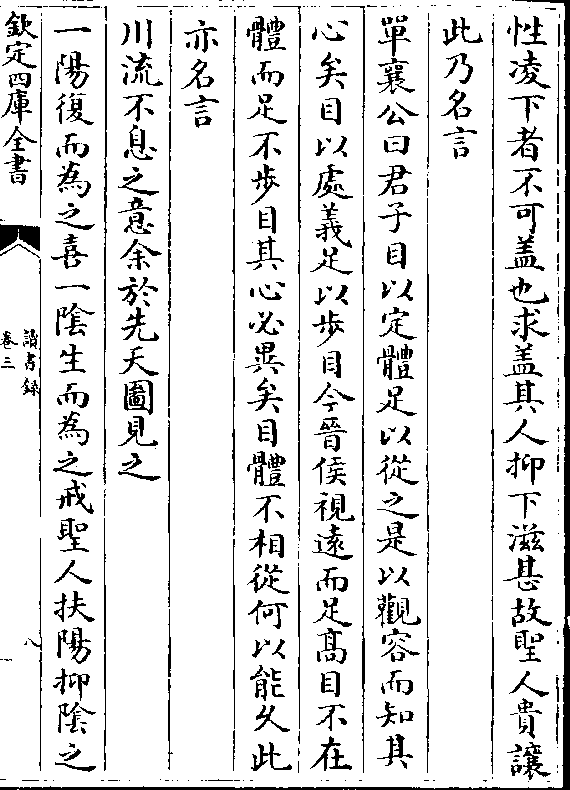 性凌下者不可盖也求盖其人抑下滋甚故聖人貴讓
此乃名言
單襄公曰君子目以定體足以從之是以觀容而知其
心矣目以處義足以步目今晉侯視遠而足髙目不在
體而足不步目其心必異矣目體不相從何以能久此
亦名言
川流不息之意余於先天圖見之
一陽復而為之喜一陰生而為之戒聖人扶陽抑陰之
欽定四庫全書
讀書録
卷三
八